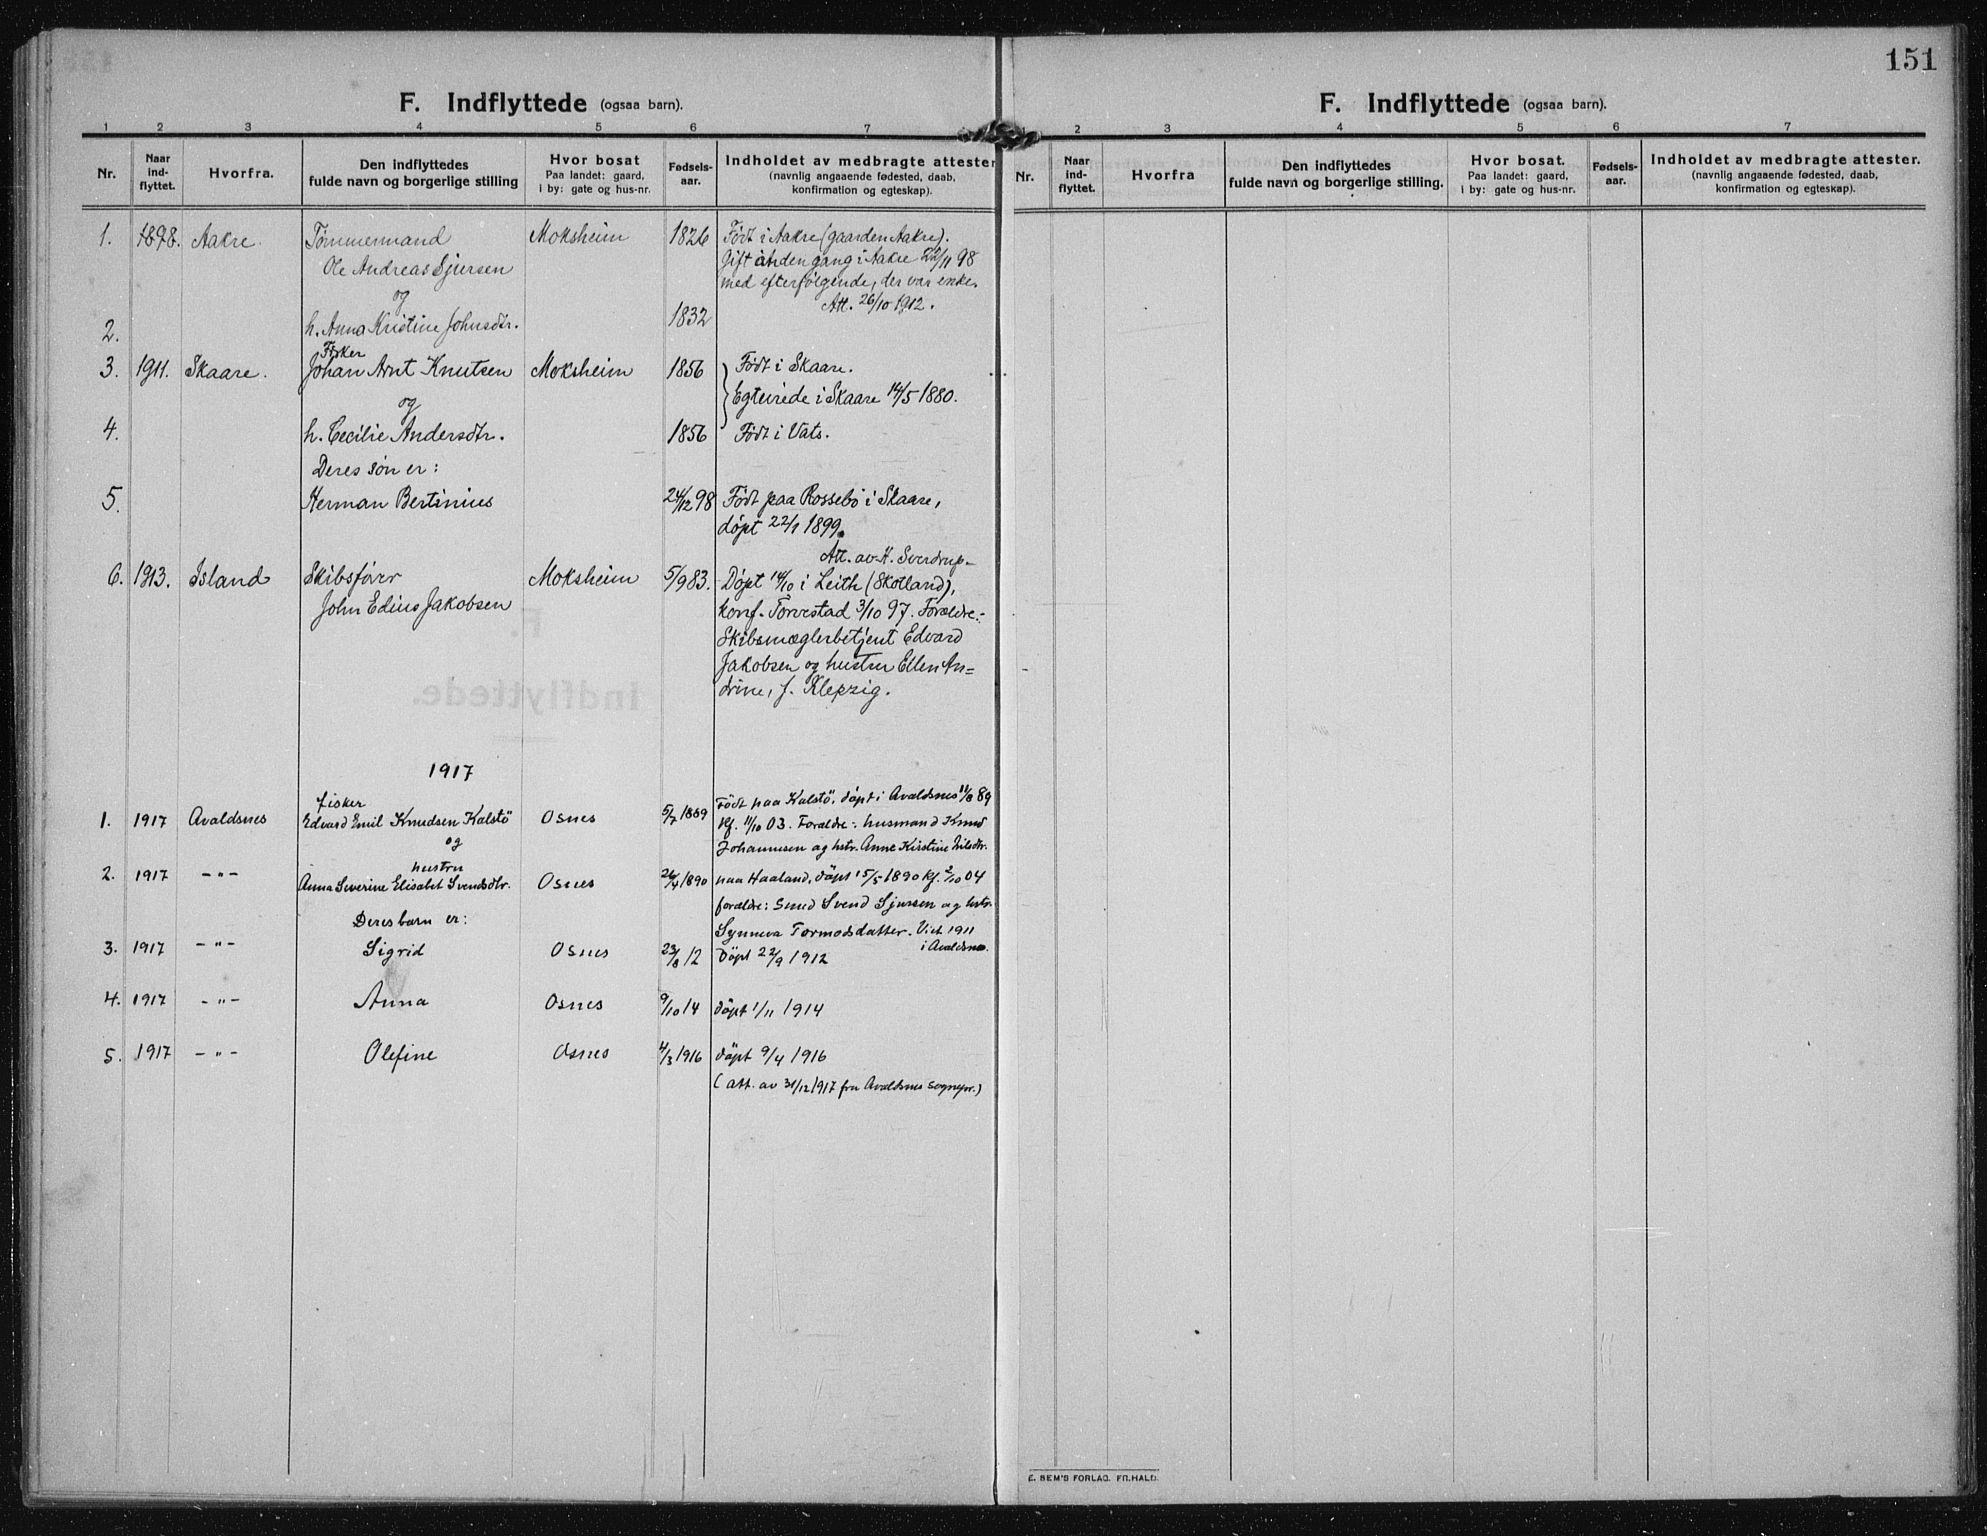 151
F. Indflyttede (ogsaa barn).
1 2 3 4 5 6 7
Nr. Naar ind-flyttet. Hvorfra. Den indflyttedes fulde navn og borgerlige stilling Hvor bosat Paa landet: gaard, i by: gate og hus-nr. Fødsels-aar. Indholdet av medbragte attester (navnlig angaaende fødested, daab, konfirmation og egteskap).
1. 1898. Aakre. Tømmermand Moksheim 1826 Født i Aakre (gaarden Aakre).
Ole Andreas Sjursen Gift anden gang i Aakre 22/11 98
og med efterfølgende, der var enke.
Att. 26/10 1912.
2. h. Anna Kristine Johnsdtr. 1832
Fisker
3. 1911. Skaare. Johan Arnt Knutsen Moksheim 1856 Født i Skaare.
og Egteviede i Skaare 14/5 1880.
4. h. Cecilie Andersdtr. 1856 Født i Vats.
Deres søn er:
5. Herman Bertinius 24/12 98 Født paa Rossebø i Skaare,
døpt 22/1 1899.
Att. av H. Sverdrup.
6. 1913. Island Skibsfører Moksheim 5/9 83. Døpt 14/10 i Leith (Skotland),
John Edius Jakobsen konf. Torvestad 3/10 97. Forældre:
Skibsmæglerbetjent Edvard
Jakobsen og hustru Ellen An=
drine, f. Klepzig.
1917
fisker Født paa Kalstø, døpt i Avaldsnes 11/8 89
1. 1917 Avaldsnes Edvard Emil Knudsen Kalstø Osnes 5/7 1889 kf. 11/10 03. Forældre: husmand Knud
og Johannesen og hstr. Anne Kirstine Nilsdtr.
hustru
2. 1917 -"- Anna Severine Elisabet Svendsdtr. Osnes 26/4 1890 paa Haaland, døpt 15/5 1890 kf. 2/10 04
forældre: Smed Svend Sjursen og hstr.
Deres barn er: Synneva Tormodsdatter. Viet 1911
i Avaldsnes.
3. 1917 -"- Sigrid Osnes 23/8 12 Døpt 22/9 1912
4. 1917 -"- Anna Osnes 9/10 14 døpt 1/11 1914
5. 1917 -"- Olefine Osnes 4/3 1916 døpt 9/4 1916
(att. av 31/12 1917 fra Avaldsnes sognepr.)
F. Indflyttede (ogsaa barn).
1 2 3 4 5 6 7
Nr. Naar ind-flyttet. Hvorfra Den indflyttedes fulde navn og borgerlige stilling. Hvor bosat. Paa landet: gaard, i by: gate og hus-nr. Fødsels-aar. Indholdet av medbragte attester. (navnlig angaaende fødested, daab, konfirmation og egteskap).
E. SEM'S FORLAG. FR.HALD.